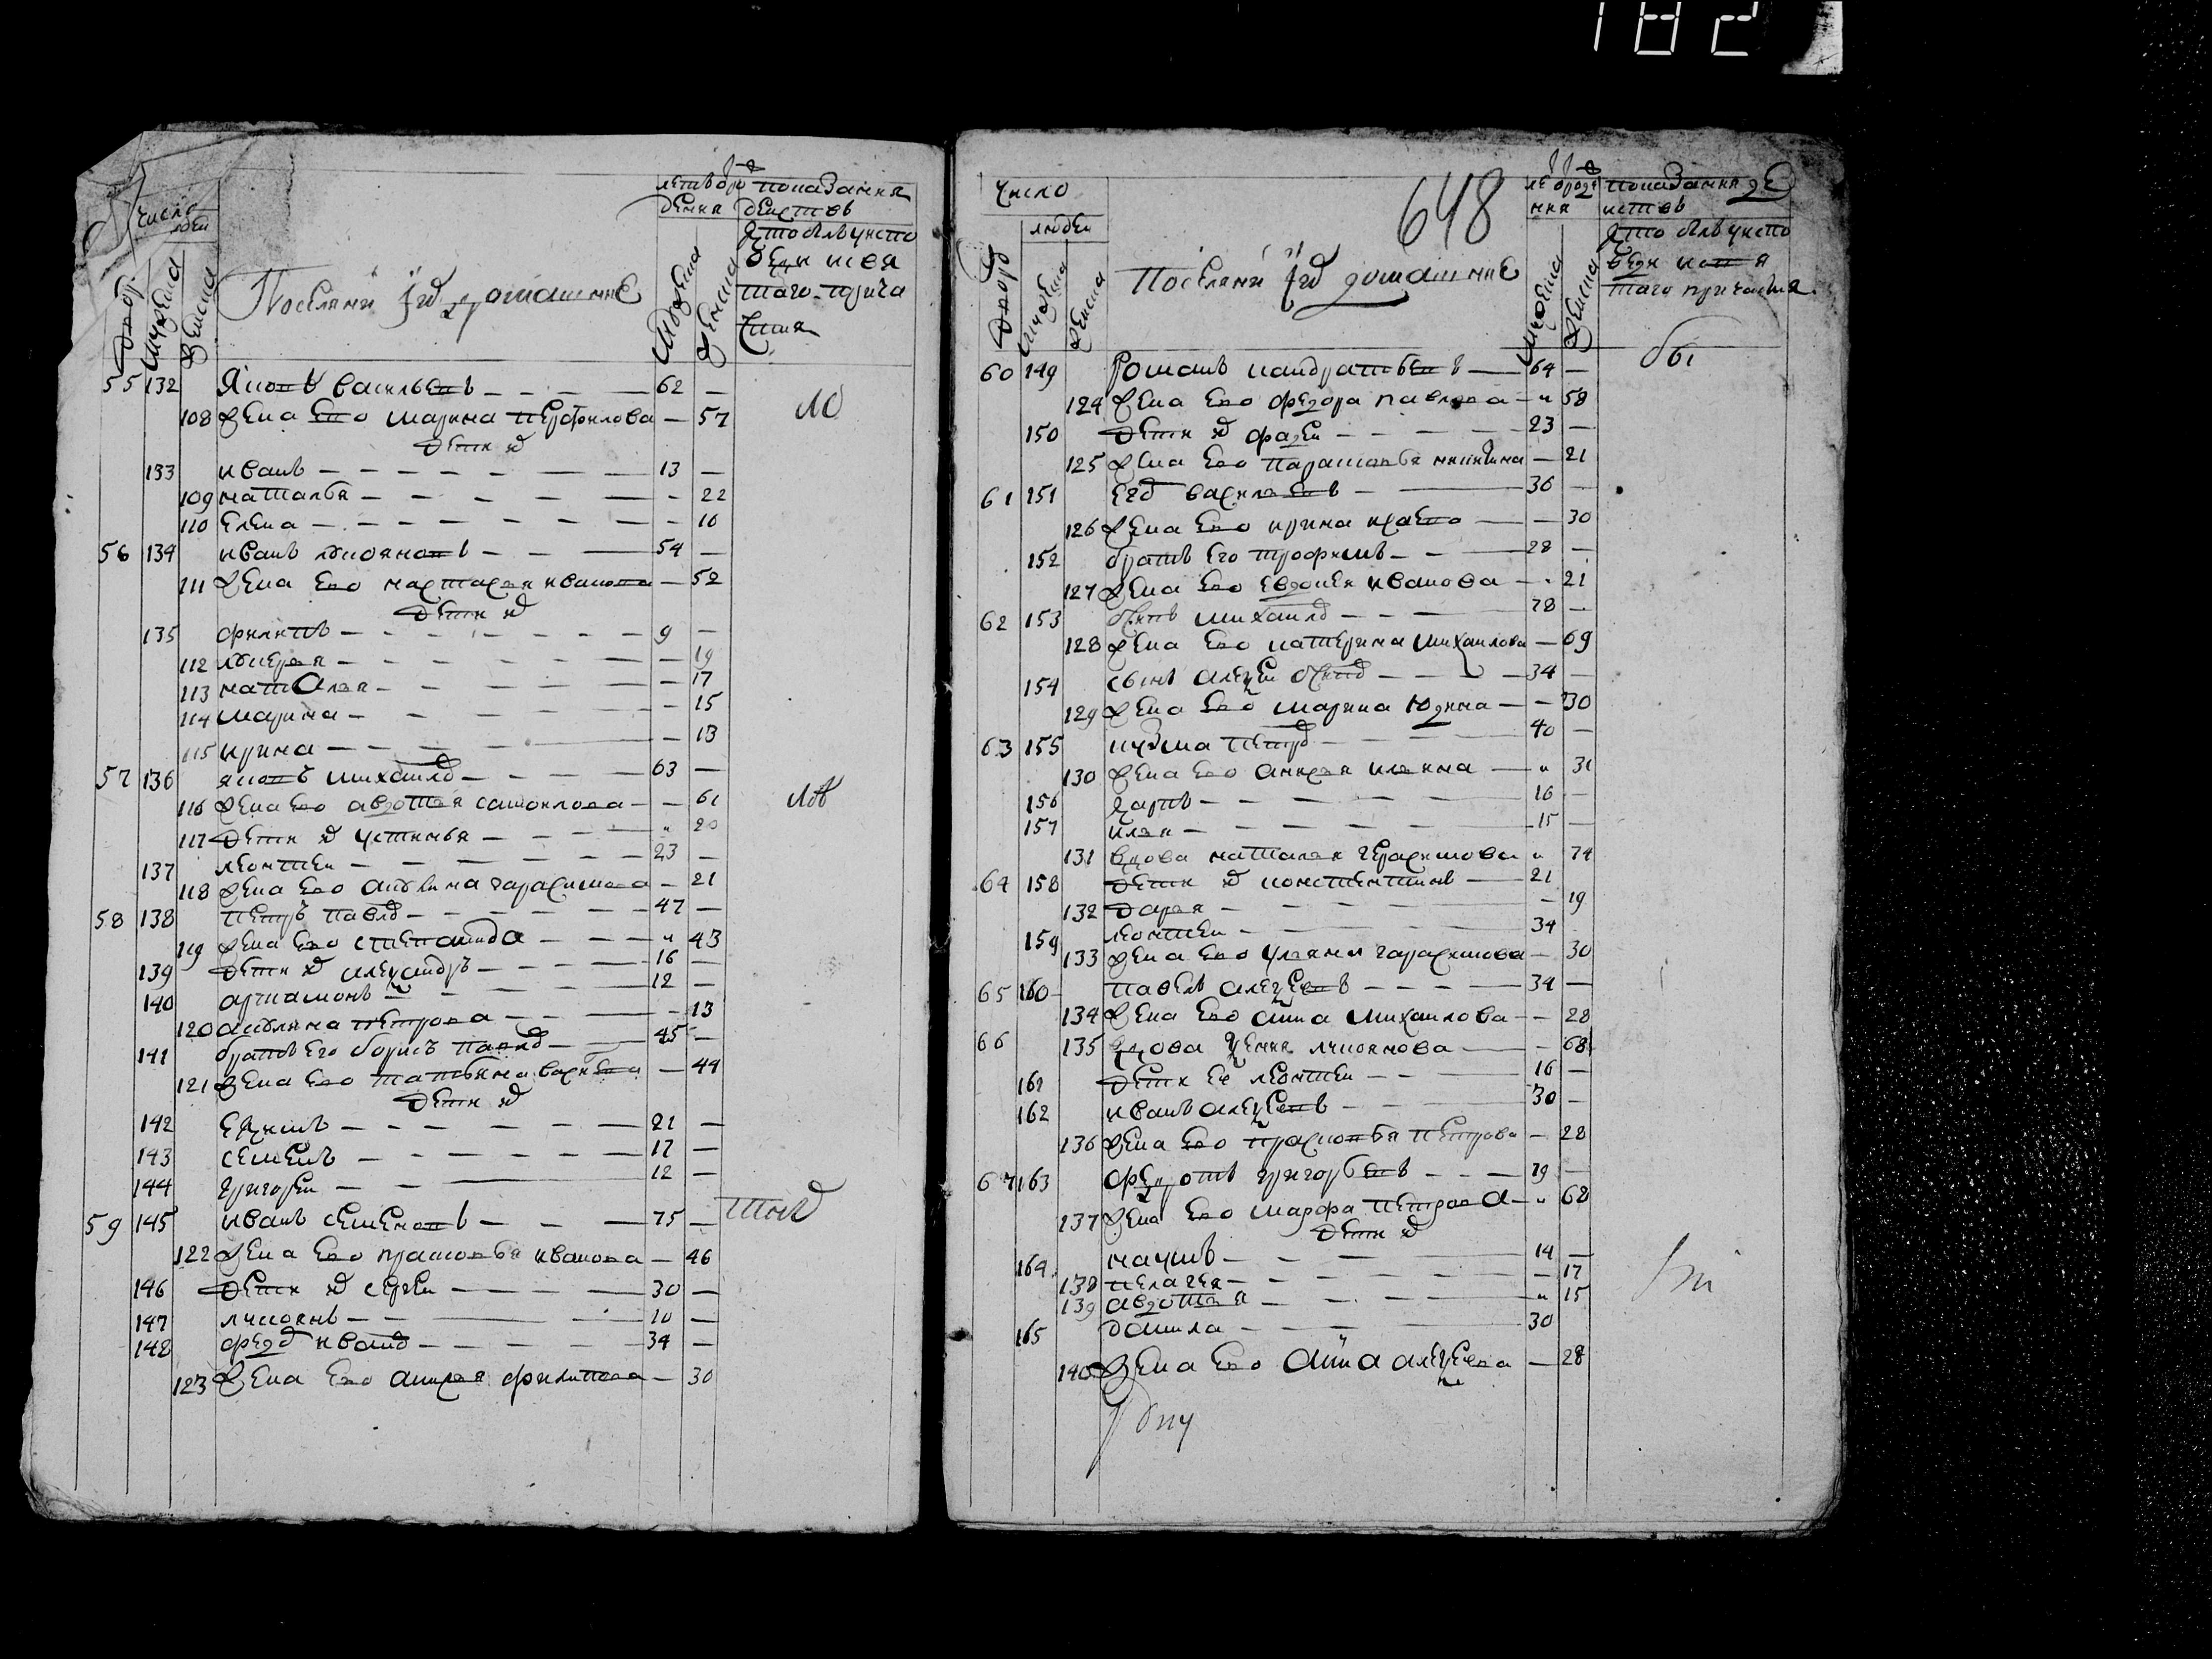 182
число
людеи
дворъ
мужеска
женска
Поселяня їхъ домашние
летъ от рождения
мужеска
женска
показания действъ
кто былъ у исповеди и светаго причастия
55 132 Яковъ васильевъ 62 —
108 Жена ево марина перфилова — 57
дети ихъ
133 иванъ 13 —
109 наталья — 22
110 елена — 10
56 134 иванъ лукояновъ 54 —
111 Жена ево настасея иванова — 52
дети ихъ
135 филипъ 9 —
112 лукерея — 19
113 наталея — 17
114 марина — 15
115 ирина — 13
57 136 яковъ михаиловъ 63 —
116 Жена ево авдотея самоилова — 61
117 дети ихъ устинья 20
137 леонтеи 23 —
118 Жена ево гарасимова — 21
58 138 петръ павловъ 47 —
119 Жена ево степанида 43
139 дети ихъ александръ 16 —
140 артамонъ 12 —
120 петрова — 13
141 братъ его борисъ павловъ 45 —
121 Жена ево татьяна васильева — 44
дети ихъ
142 ефимъ 21 —
143 семенъ 17 —
144 григореи 12 —
59 145 иванъ семеновъ 75 —
122 Жена ево прасковья иванова — 46
146 дети ихъ сергеи 30 —
147 лукоянъ 10 —
148 федоръ ивановъ 34 —
123 Жена ево анисея филипова — 30
648
число
людеи
дворъ
мужеска
женска
Поселяня їхъ домашние
летъ от рождения
мужеска
женска
показания действъ
кто былъ у исповеди и светаго причастия
60 149 Романъ кандратьевъ 64 —
124 Жена ево федора павлова 58
150 дети ихъ фадеи 23 —
125 Жена ево парасковья никитина — 21
61 151 егоръ васильевъ 36 —
126 Жена ево ирина — 30
152 братъ его трофимъ 28 —
127 Жена ево евдокея иванова 21
62 153 осипъ михаиловъ 78 —
128 Жена ево катерина михаилова — 69
154 сынъ алексеи осиповъ 34 —
129 Жена ево марина юдина — 30
63 155 кузма петровъ 40 —
130 Жена ево анисея илина 31
156 карпъ 16 —
157 илея 15 —
131 вдова наталея герасимова 74
64 158 дети ихъ констентинъ 21
132 дарея — 19
159 леонтеи 34
133 Жена ево улеяна гарасимова — 30
65 160 павелъ алексеевъ 34 —
134 Жена ево анна михаилова — 28
66 135 вдова ксения лукоянова — 68
161 дети ее леонтеи 16 —
162 иванъ алексеевъ 30 —
136 Жена ево прасковья петрова — 28
67 163 федотъ григорьевъ 79 —
137 Жена ево марфа петрова 68
дети ихъ
164 наумъ 14 —
138 пелагея — 17
139 авдотея 15
165 данила 30
140 Жена ево анна алексеева — 28